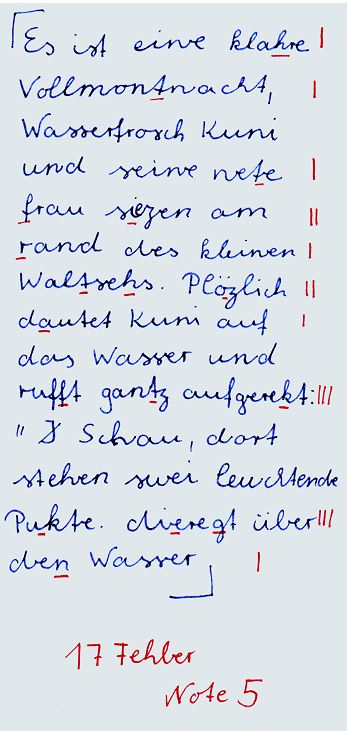 Es ist eine klahre
Vollmontnacht,
Wasserfrosch Kuni
und seine nete
frau siezen am
rand des kleinen
Waltsehs. Plözlich
dautet Kuni auf
das Wasser und
rufft gantz aufgerekt:
" Schau, dort
stehen zwei leuchtende
Pukte. dieregt über
den Wasser
17 Fehler
Note 5